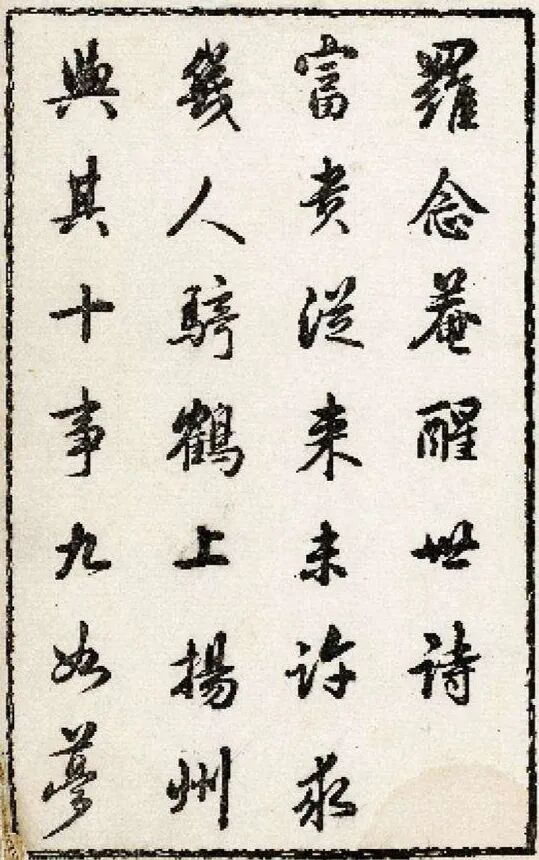 羅念菴醒世詩
富貴從来未許求
幾人騎鶴上揚州
與其十事九如夢